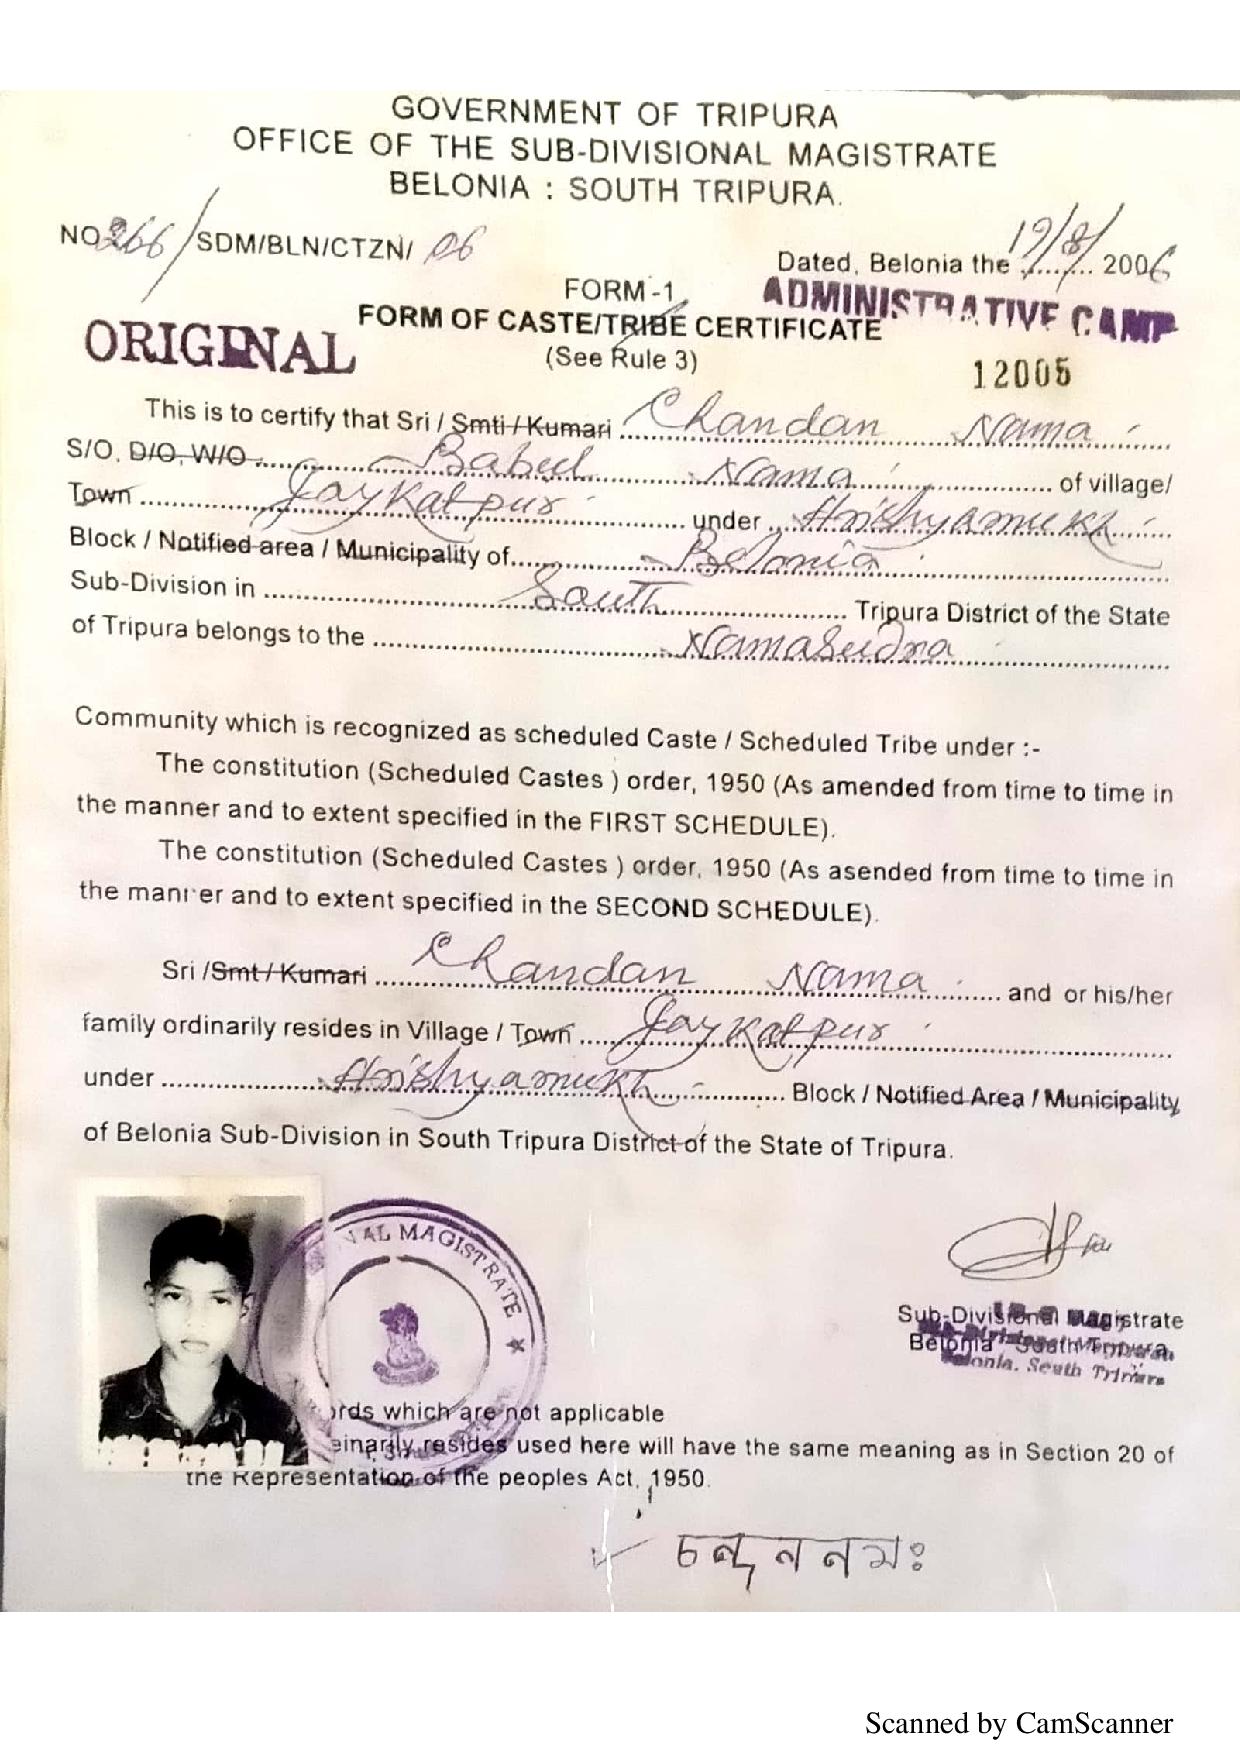 GOVERNMENT OF TRIPURA
OFFICE OF THE SUB-DIVISIONAL MAGISTRATE
BELONIA : SOUTH TRIPURA.
NO 266/SDM/BLN/CTZN/ 06
Dated, Belonia the 19/8/ 2006
FORM -1
ADMINISTRATIVE CAMP
FORM OF CASTE/TRIBE CERTIFICATE
ORIGINAL
(See Rule 3)
12005
This is to certify that Sri / Smti / Kumari Chandan Nama
S/O, D/O, W/O Babul Nama of village/
Town Jaykatpur under Hrishyamukh
Block / Notified area / Municipality of Belonia
Sub-Division in South Tripura District of the State
of Tripura belongs to the Namasudra
Community which is recognized as scheduled Caste / Scheduled Tribe under :-
The constitution (Scheduled Castes ) order, 1950 (As amended from time to time in
the manner and to extent specified in the FIRST SCHEDULE).
The constitution (Scheduled Castes ) order, 1950 (As asended from time to time in
the manner and to extent specified in the SECOND SCHEDULE).
Sri /Smt / Kumari Chandan Nama and or his/her
family ordinarily resides in Village / Town Jaykatpur
under Hrishyamukh Block / Notified Area / Municipality
of Belonia Sub-Division in South Tripura District of the State of Tripura.
NAL MAGISTRATE ★
Sub-Divisional Magistrate
Belonia South Tripura
Belonia. South Tripura
ords which are not applicable
inarily resides used here will have the same meaning as in Section 20 of
the Representation of the peoples Act, 1950.
চন্দন নমঃ
Scanned by CamScanner